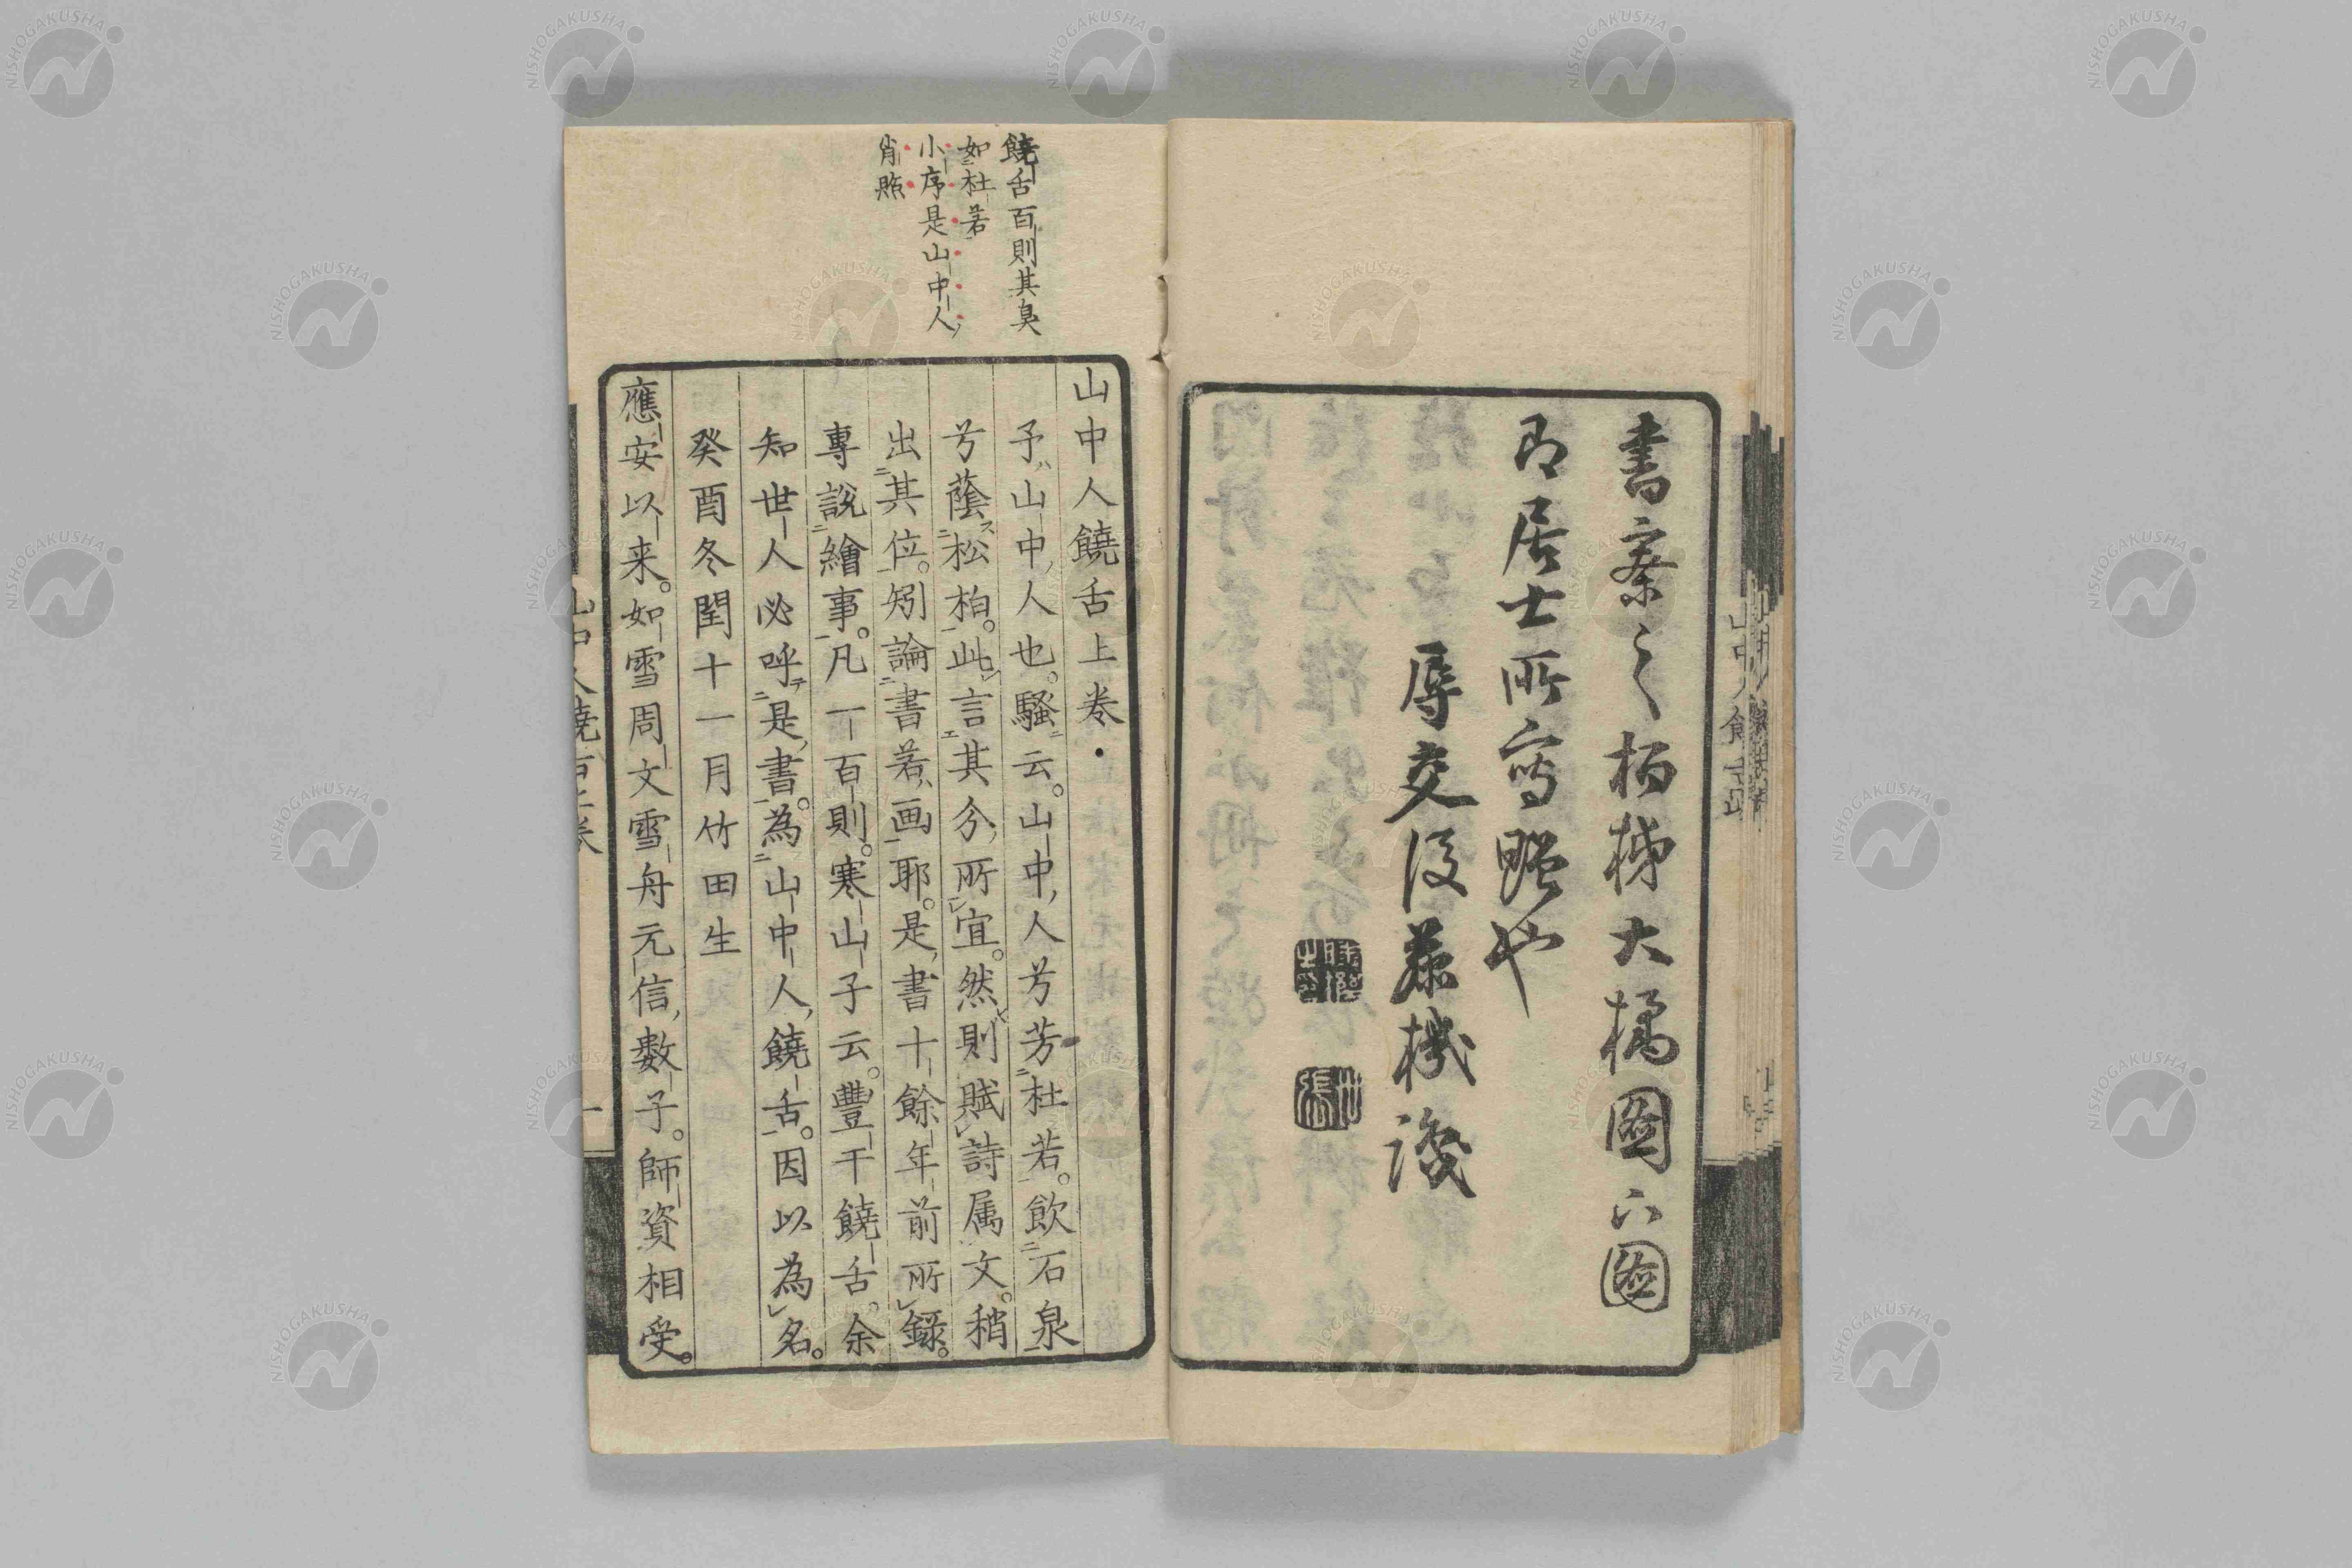 書案之
大橘圖六圖
即居士所寫照也
辱交後藤機識
饒舌百則其臭
如杜若
小序是山中人
肖照
山中人饒舌上卷
予山中人也。騷云。山中人兮芳杜若。飲石泉
兮蔭松柏。此言其分所宜。然則賦詩属文。稍
出其位。矧論書若画耶。是書十餘年前所録。
專說繪事。凡一百則。寒山子云。豐干饒舌。余
知世人必呼是書。為山中人饒舌。因以為名。
癸酉冬閏十一月竹田生
應安以来。如雪周文雪舟元信數子。師資相受。
NISHOGAKUSHA